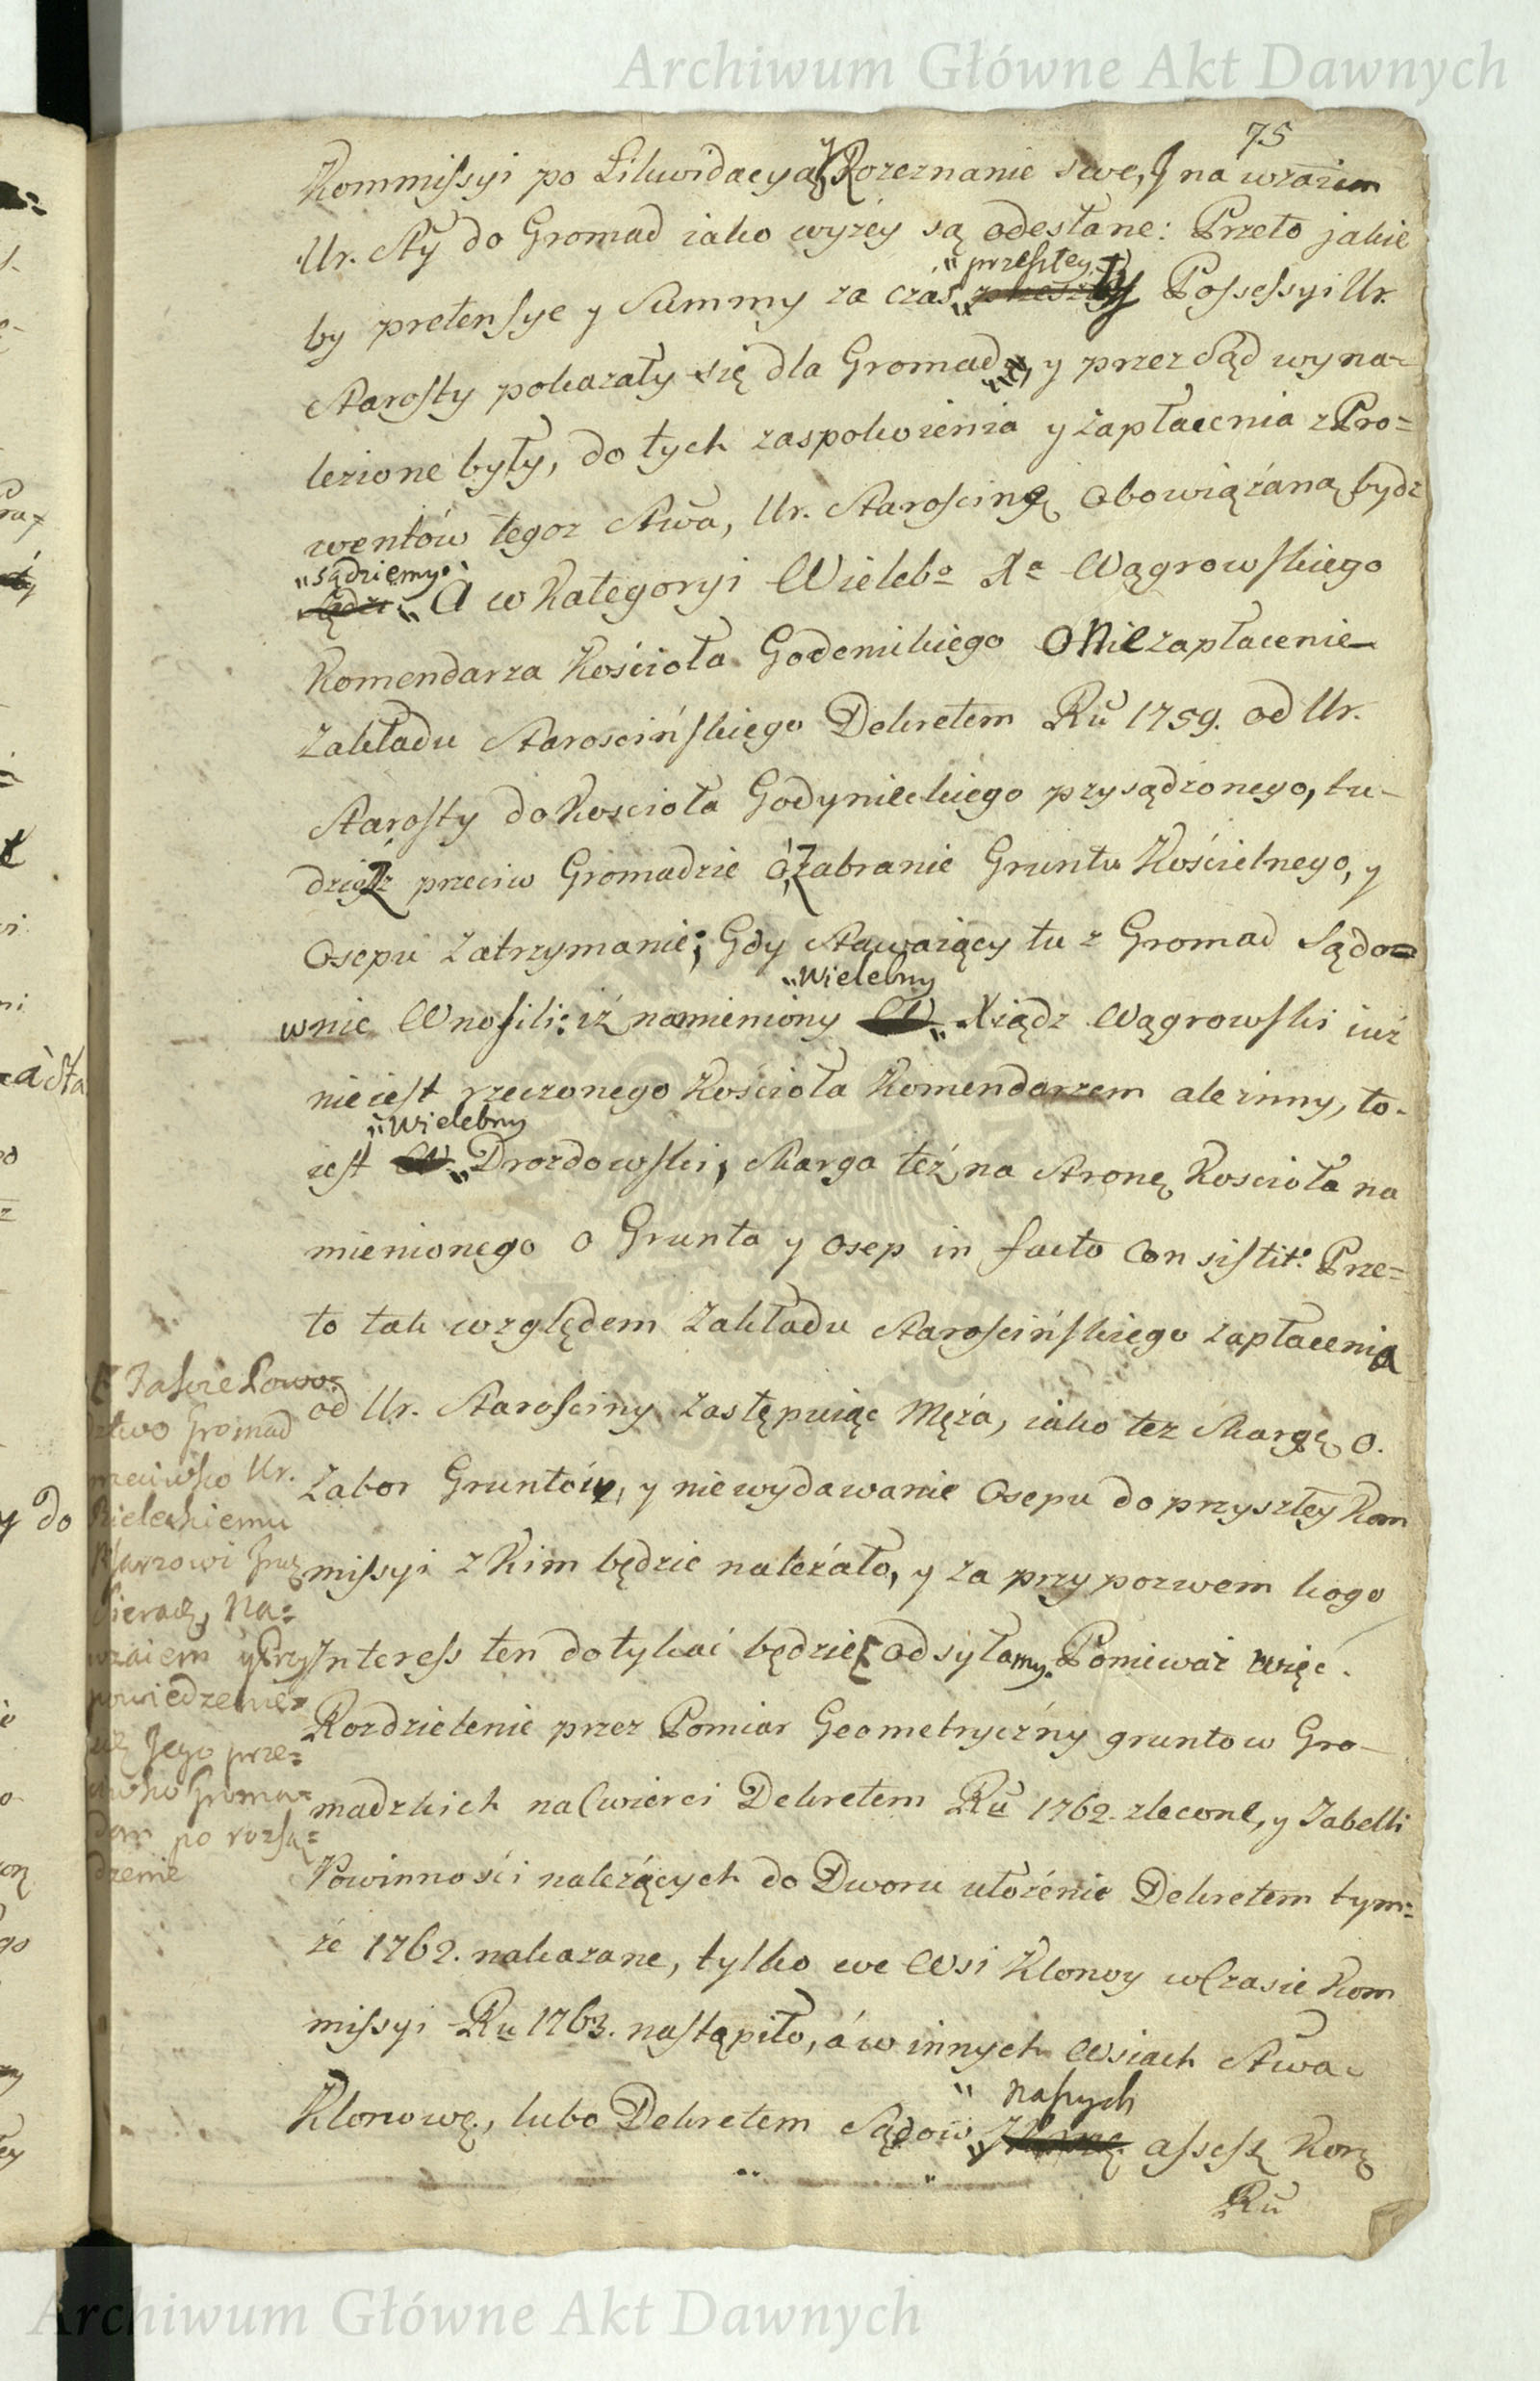 Archiwum Główne Akt Dawnych
75
Kommissyi po Likwidacyą y Rozeznanie swe, J na wzaiem
Ur. Sty do Gromad iako wyżey są odesłane: Przeto jakie
by pretensye y Summy za czas przeszłey Possessyi Ur.
Starosty pokazały się dla Gromad, y przez Sąd wyna-
lezione były, do tych zaspokoienia y zapłacenia z Pro=
wentów tegoz Stwa, Ur. Starościnę obowiązáną bydz
sądziemy. A w Kategoryi Wieleb° Xa Wągrowskiego
Komendarza Kościoła Godenickiego o Niezapłacenie
Zakładu Starościńskiego Dekretem Ru 1759. od Ur.
Starosty do Kościoła Godynieckiego przysądzonego, tu-
dzież przeciw Gromadzie o Zabranie Gruntu Kościelnego, y
Osepu Zatrzymanie; Gdy Stawaiący tu z Gromad Sądo=
wnie Wnosili: iż namieniony Wielebny Xiądz Wągrowski iuż
nieiest rzeczonego Kościoła Komendarzem ale inny, to-
iest Wielebny Drozdowski, Skarga też na Stronę Kościoła na
mienionego o Grunta y Osep in facto Consistit: Prze=
to tak względem Zakładu Starościńskiego zapłacenia
od Ur. Starościny Zastępuiąc Męża, iako też Skargę o.
Zabor Gruntów, y niewydawanie Osepu do przyszłey Kom
missyi z Kim będzie należało, y za przypozwem kogo
Interess ten dotykać będzie odsyłamy. Ponieważ więc.
Rozdzielenie przez Pomiar Geometryczny gruntow Gro-
madzkich na Cwierci Dekretem Ru 1762. zlecone, y Tabelli
Powinności należących do Dworu ułożenie Dekretem tym=
że 1762. nakazane, tylko we Wsi Klonowy w Czasie Kom
missyi Ru 1763. nastąpiło, á w innych Wsiach Stwa
Klonowę., lubo Dekretem Sądow naszych assessę Korę
Ru
Powo=
ztwo Gromad
przeciwko Ur.
Bieleckiemu
Sieradz, Na=
wzaiem y Przy
powiedzenie
Jego prze=
ciwko Groma=
dom po rozsą=
dzenie
Archiwum Główne Akt Dawnych